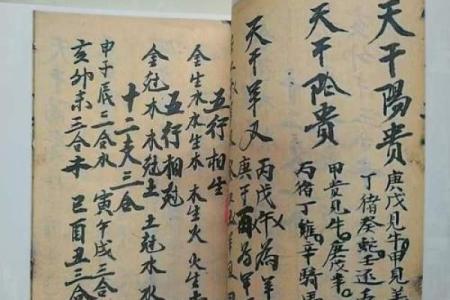 天干陽貴
庚戊見牛甲見羊
丁猪癸蛇壬
天干陰貴
甲貴見牛庚戊羊
丙猪丁雞辛騎馬
天干羊又
丙戊午為羊
庚干酉為羊
五行相生
金生水水生木 木生火火生
五行相尅
金尅木木尅土 土尅水
十二支三合
申子辰三合水 寅午戌三合
亥卯未三合木 巳酉丑三合